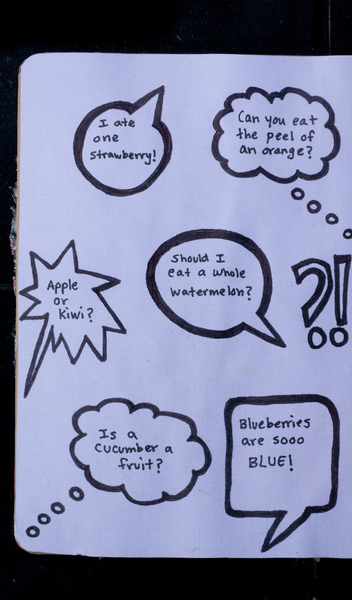 I ate
one
strawberry!
Can you eat
the peel of
an orange?
Apple
or
Kiwi?
Should I
eat a whole
watermelon?
?!
Is a
cucumber a
fruit?
Blueberries
are sooo
BLUE!